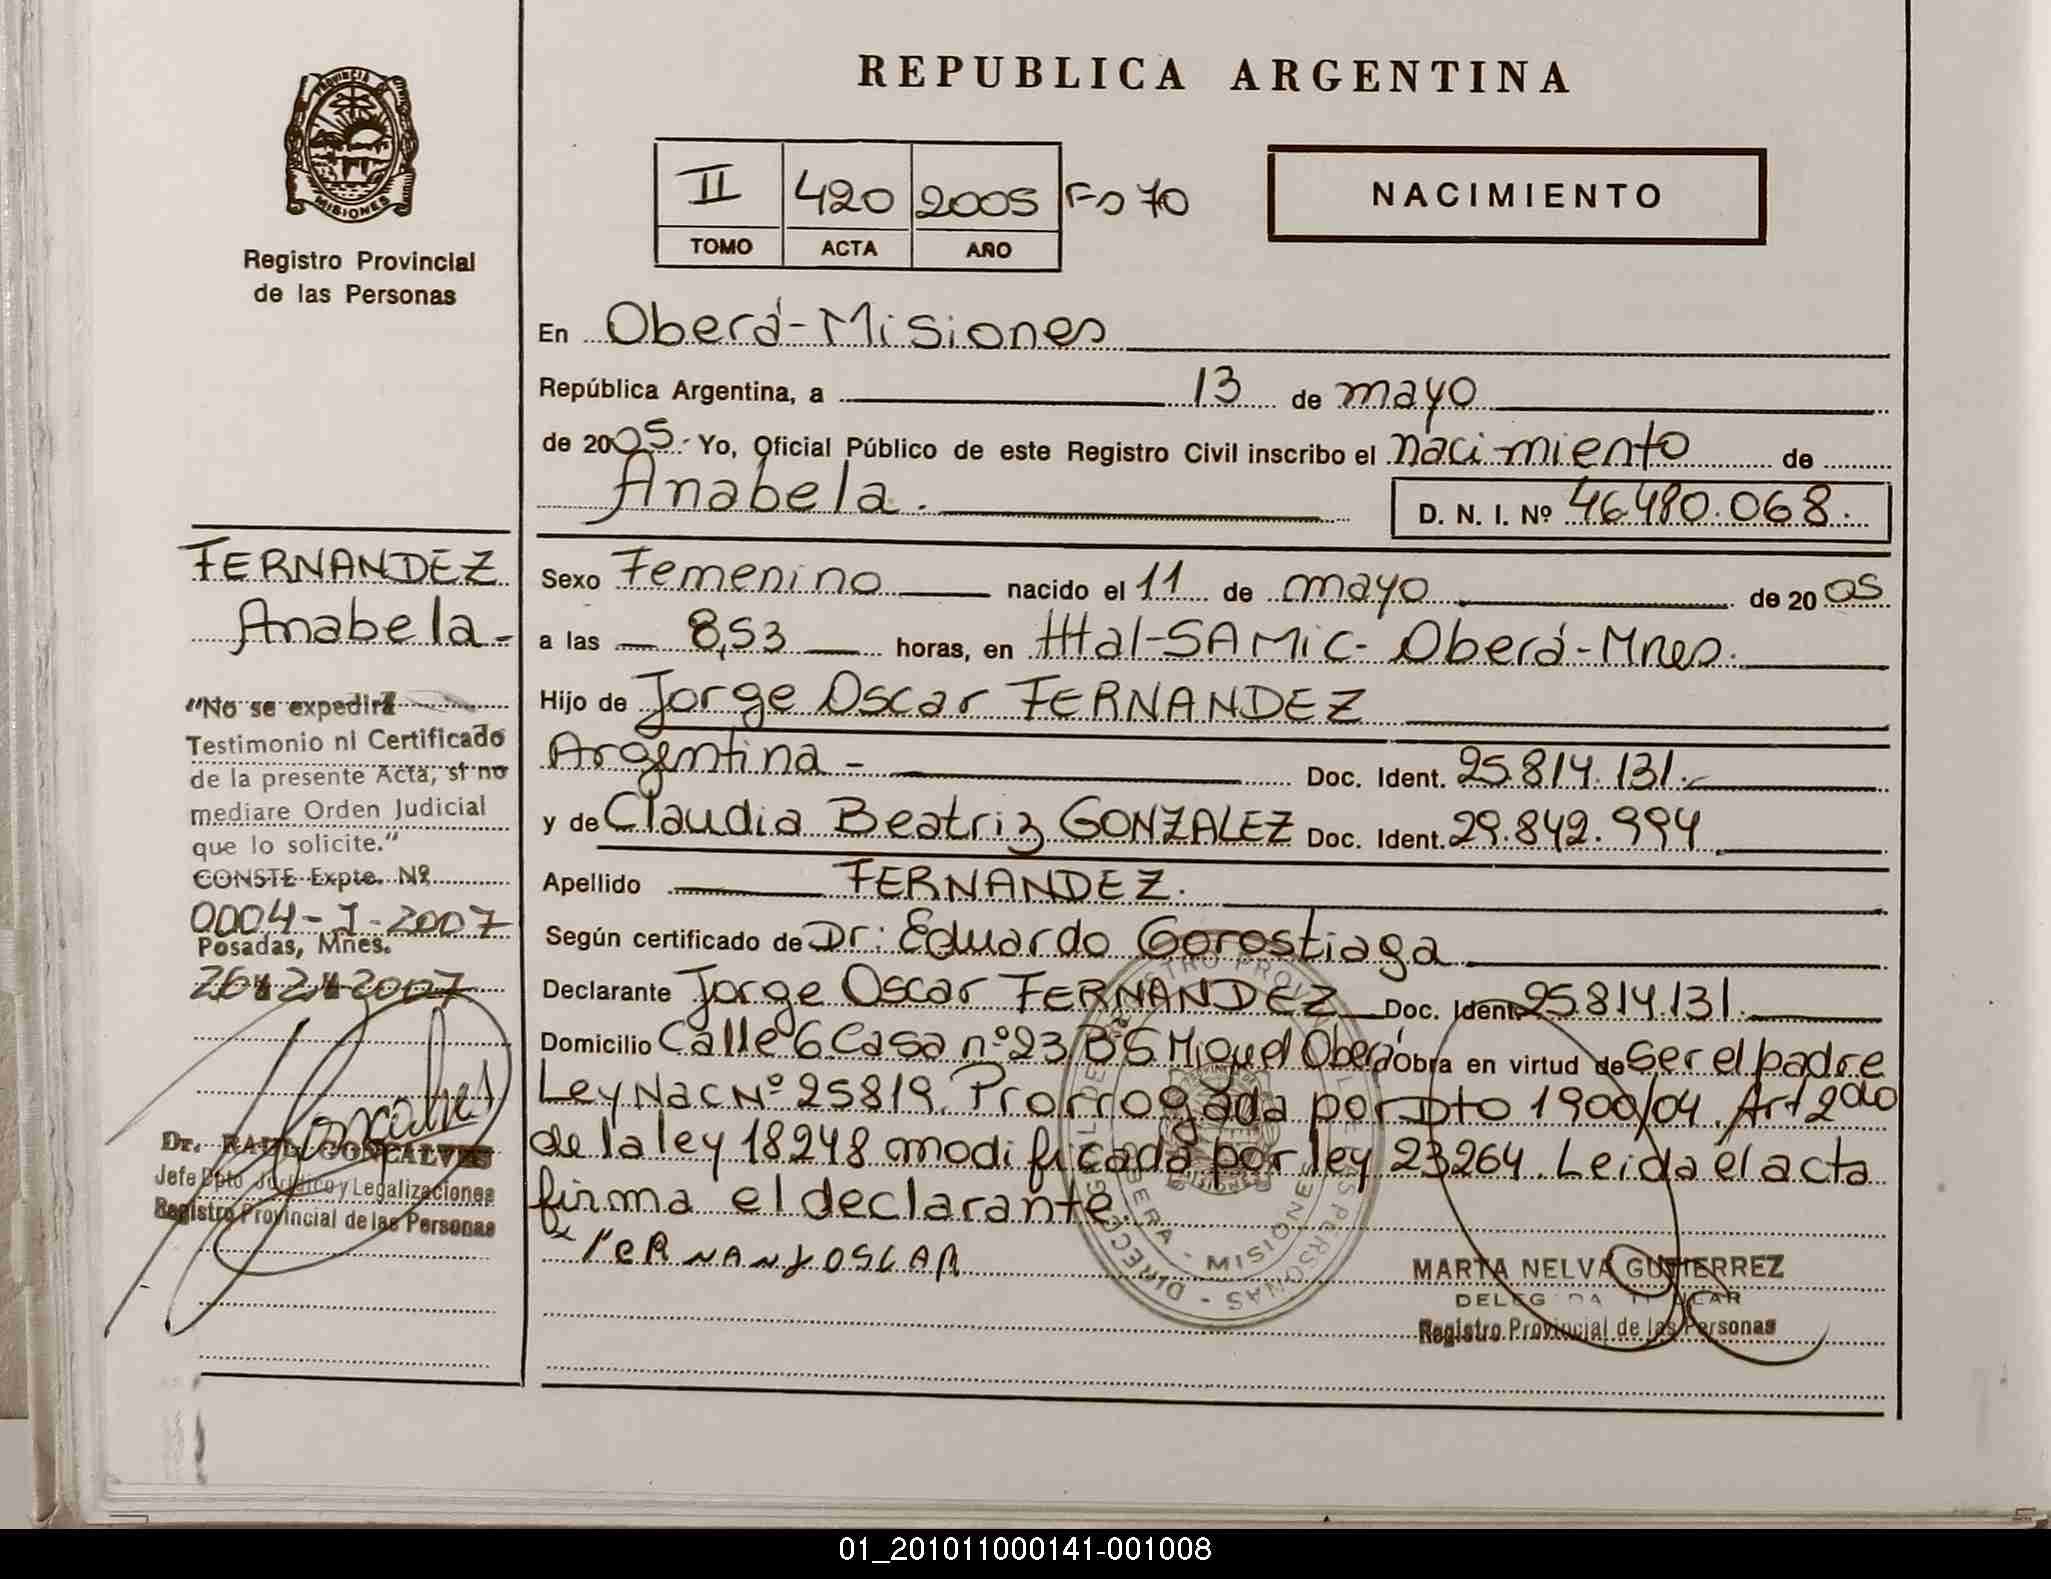 REPUBLICA ARGENTINA
PROVINCIA
MISIONES
Registro Provincial
de las Personas
II 420 2005 Fo 70
TOMO ACTA AÑO
NACIMIENTO
En Oberá-Misiones
República Argentina, a 13 de mayo
de 2005.- Yo, Oficial Público de este Registro Civil inscribo el nacimiento de
Anabela.
D. N. I. Nº 46.480.068.
FERNANDEZ
Anabela-
"No se expedirá
Testimonio ni Certificado
de la presente Acta, si no
mediare Orden Judicial
que lo solicite."
CONSTE Expte. Nº
0004-J-2007
Posadas, Mnes.
26 2 2007
Dr. RAUL GONCALVES
Jefe Dpto Jurídico y Legalizaciones
Registro Provincial de las Personas
Sexo Femenino nacido el 11 de mayo de 2005
a las 8,53 horas, en Htal-SAMIC- Oberá-Mnes.
Hijo de Jorge Oscar FERNANDEZ
Argentina - Doc. Ident. 25.814.131.
y de Claudia Beatriz GONZALEZ Doc. Ident. 29.842.994
Apellido FERNANDEZ.
Según certificado de Dr: Eduardo Gorostiaga
Declarante Jorge Oscar FERNANDEZ Doc. Ident. 25.814.131.
Domicilio Calle 6 Casa nº 23 Bº S Miguel Oberá Obra en virtud de Ser el padre
Ley Nac Nº 25819. Prorrogada por Dto 1900/04. Art 2do
de la ley 18248 modificada por ley 23264. Leida el acta
firma el declarante.
MARTA NELVA GUTIERREZ
DELEGADA TITULAR
Registro Provincial de las Personas
01_201011000141-001008